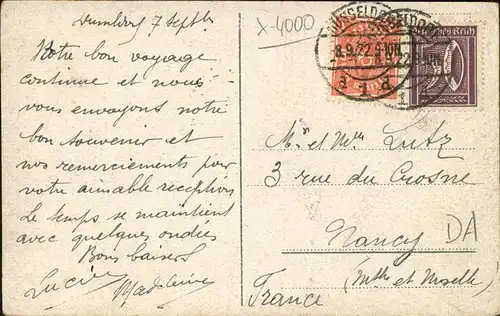 Dusseldorf 7 Septbre
Notre bon voyage
continue et nous
vous envoyons notre
bon souvenir et
nos remerciements pour
votre aimable reception
Le temps se maintient
avec quelques ondées
Bons baisers
Lucien Madeleine
x-4000
DÜSSELDORF
8.9.22
Deutsches Reich
Mr et Mme Lutz
3 rue du Crosne
Nancy
DA
(Mthe et Moselle)
France